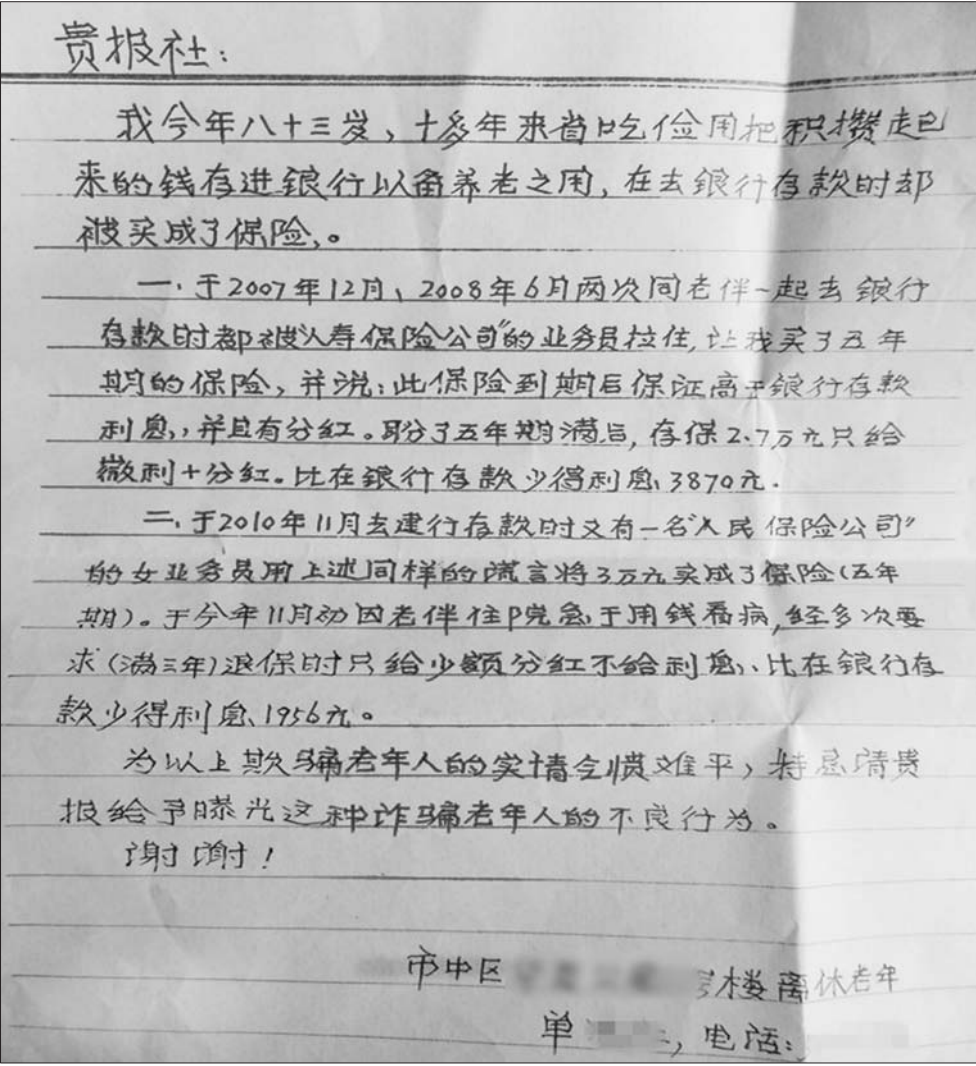 贵报社:
我今年八十三岁，十多年来省吃俭用把积攒起
来的钱存进银行以备养老之用，在去银行存款时却
被买成了保险,。
一、于2007年12月、2008年6月两次同老伴一起去银行
存款时都被"人寿保险公司"的业务员拉住，让我买了五年
期的保险，并说：此保险到期后保证高于银行存款
利息，并且有分红。盼了五年期满后，存保2.7万元只给
微利+分红。比在银行存款少得利息3870元.
二、于2010年11月去建行存款时又有一名"人民保险公司"
的女业务员用上述同样的谎言将3万元买成了保险(五年
期)。于今年11月初因老伴住院急于用钱看病，经多次要
求(满三年)退保时只给少额分红不给利息、比在银行存
款少得利息1956元。
为以上欺骗老年人的实情令愤难平，特恳请贵
报给予曝光这种诈骗老年人的不良行为。
谢谢！
市中区 楼离休老年
单 ，电话: